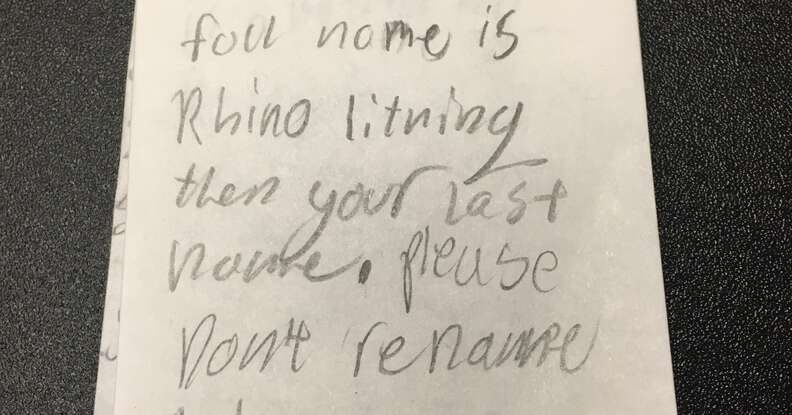 foll name is
Rhino litning
then your last
name. please
Dont rename